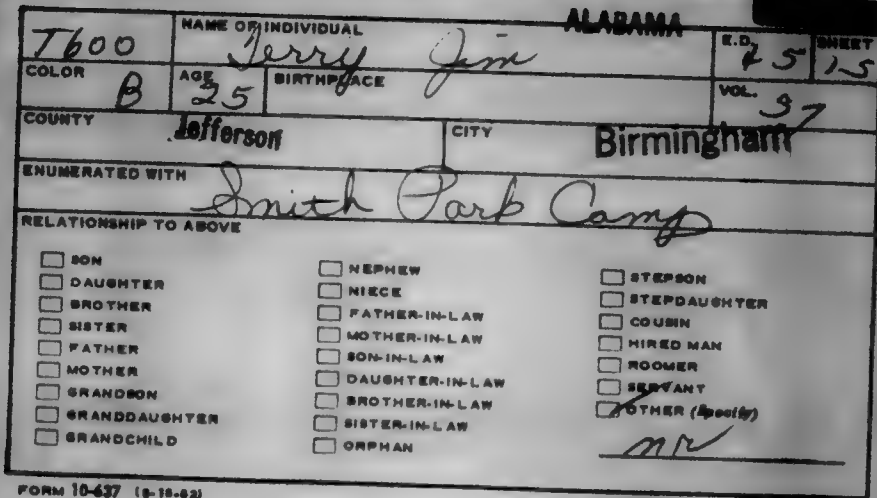 ALABAMA
T600 NAME OF INDIVIDUAL Terry Jim E.D. 45 SHEET 15
COLOR B AGE 25 BIRTHPLACE VOL. 37
COUNTY Jefferson CITY Birmingham
ENUMERATED WITH Smith Park Camp
RELATIONSHIP TO ABOVE
SON
DAUGHTER
BROTHER
SISTER
FATHER
MOTHER
GRANDSON
GRANDDAUGHTER
GRANDCHILD
NEPHEW
NIECE
FATHER-IN-LAW
MOTHER-IN-LAW
SON-IN-LAW
DAUGHTER-IN-LAW
BROTHER-IN-LAW
SISTER-IN-LAW
ORPHAN
STEPSON
STEPDAUGHTER
COUSIN
HIRED MAN
ROOMER
SERVANT
OTHER (Specify)
nr
FORM 10-637 (8-18-62)